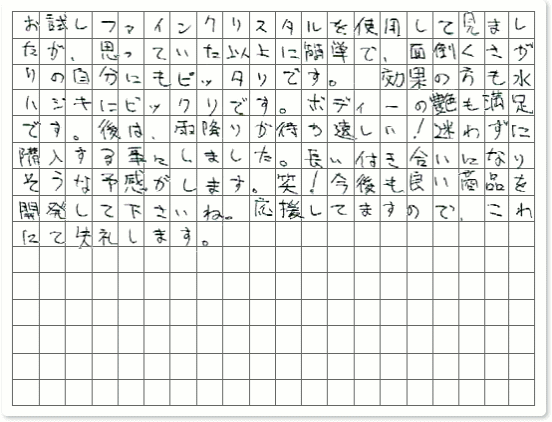 お試しファインクリスタルを使用して見まし
たが、思っていた以上に簡単で、面倒くさが
りの自分にもピッタリです。　効果の方も水
ハジキにビックリです。ボディーの艶も満足
です。後は、雨降りが待ち遠しい！迷わずに
購入する事にしました。長い付き合いになり
そうな予感がします。笑！今後も良い商品を
開発して下さいね。応援してますので、これ
にて失礼します。